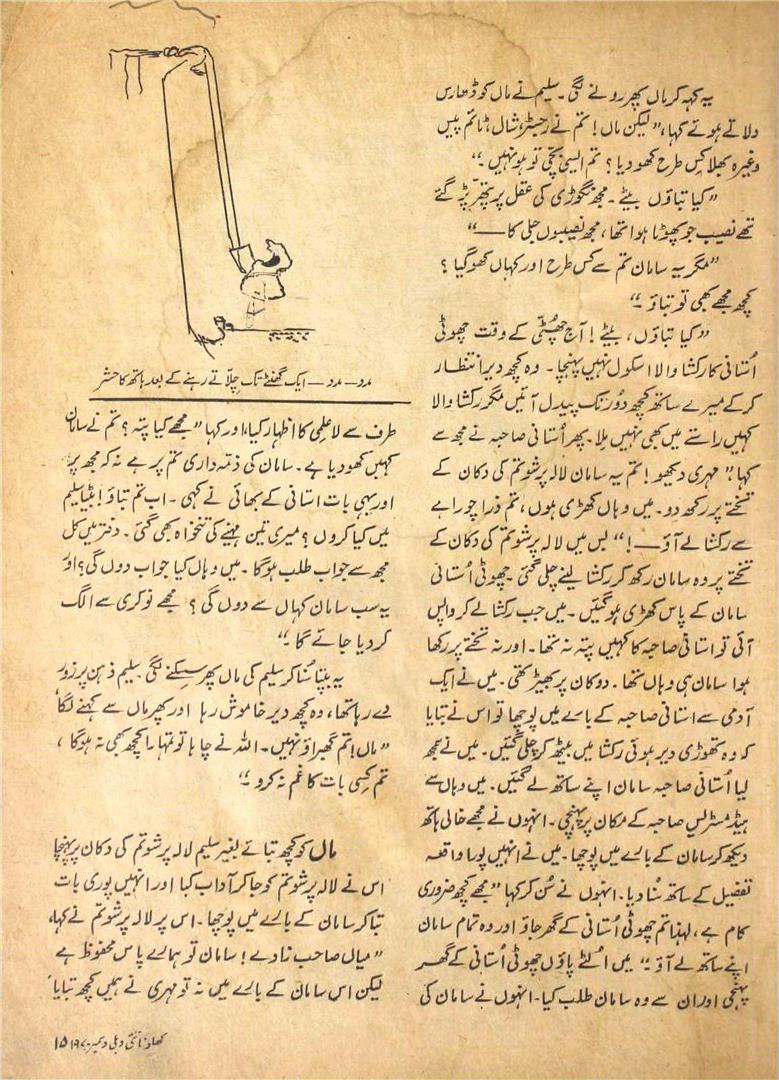 یہ کہہ کر ماں پھر رونے لگی۔ سلیم نے ماں کو ڈھارس
دلاتے ہوئے کہا، ”لیکن ماں! تم نے رجسٹر، شال ٹائم پیس
وغیرہ بھلا کس طرح کھو دیا؟ تم ایسی بچّی تو ہو نہیں۔“
”کیا بتاؤں بیٹے۔ مجھ نگوڑی کی عقل پر پتھر پڑ گئے
تھے نصیب جو پھوٹا ہوا تھا، مجھ نصیبوں جلی کا——“
”مگر یہ سامان تم سے کس طرح اور کہاں کھو گیا؟
کچھ مجھے بھی تو بتاؤ۔“
”کیا بتاؤں، بیٹے! آج چھٹی کے وقت چھوٹی
اُستانی کا رکشا والا اسکول نہیں پہنچا۔ وہ کچھ دیر انتظار
کر کے میرے ساتھ کچھ دُور تک پیدل آئیں مگر رکشا والا
کہیں راستے میں بھی نہیں ملا۔ پھر اُستانی صاحبہ نے مجھ سے
کہا ”مہری دیکھو! تم یہ سامان لالہ پرشوتم کی دکان کے
تختے پر رکھ دو۔ میں وہاں کھڑی ہوں، تم ذرا چوراہے
سے رکشا لے آؤ——!“ بس میں لالہ پرشوتم کی دکان کے
تختے پر وہ سامان رکھ کر رکشا لینے چلی گئی۔ چھوٹی اُستانی
سامان کے پاس کھڑی ہو گئیں۔ میں جب رکشا لے کر واپس
آئی تو استانی صاحبہ کا کہیں پتہ نہ تھا۔ اور نہ تختے پر رکھا
ہوا سامان ہی وہاں تھا۔ دوکان پر بھیڑ تھی۔ میں نے ایک
آدمی سے استانی صاحبہ کے بارے میں پوچھا تو اس نے بتایا
کہ وہ تھوڑی دیر ہوئی رکشا میں بیٹھ کر چلی گئیں۔ میں نے سمجھ
لیا اُستانی صاحبہ سامان اپنے ساتھ لے گئیں۔ میں وہاں سے
ہیڈ مسٹریس صاحبہ کے مکان پر پہنچی۔ انہوں نے مجھے خالی ہاتھ
دیکھ کر سامان کے بارے میں پوچھا۔ میں نے انہیں پورا واقعہ
تفصیل کے ساتھ سُنا دیا۔ انہوں نے سُن کر کہا ”مجھے کچھ ضروری
کام ہے، لہٰذا تم چھوٹی اُستانی کے گھر جاؤ اور وہ تمام سامان
اپنے ساتھ لے آؤ۔“ میں اُلٹے پاؤں چھوٹی اُستانی کے گھر
پہنچی اور ان سے وہ سامان طلب کیا۔ انہوں نے سامان کی
مدد — مدد — ایک گھنٹے تک چلّاتے رہنے کے بعد ہاتھ کا حشر
طرف سے لاعلمی کا اظہار کیا، اور کہا ”مجھے کیا پتہ؟ تم نے سامان
کہیں کھو دیا ہے۔ سامان کی ذمّہ داری تم پر ہے نہ کہ مجھ پر“
اور یہی بات استانی کے بھائی نے کہی۔ اب تم بتاؤ! بیٹا سلیم
میں کیا کروں؟ میری تین مہینے کی تنخواہ بھی گئی۔ دفتر میں کل
مجھ سے جواب طلب ہو گا۔ میں وہاں کیا جواب دوں گی؟ اور
یہ سب سامان کہاں سے دوں گی؟ مجھے نوکری سے الگ
کر دیا جائے گا۔“
یہ بپتا سُنا کر سلیم کی ماں پھر سسکنے لگی۔ سلیم ذہن پر زور
دے رہا تھا، وہ کچھ دیر خاموش رہا اور پھر ماں سے کہنے لگا،
”ماں! تم گھبراؤ نہیں۔ اللہ نے چاہا تو تمہارا کچھ بھی نہ ہو گا،
تم کِسی بات کا غم نہ کرو۔“
ماں کو کچھ بتائے بغیر سلیم لالہ پرشوتم کی دکان پر پہنچا
اس نے لالہ پرشوتم کو جا کر آداب کیا اور انہیں پوری بات
بتا کر سامان کے بارے میں پوچھا۔ اس پر لالہ پرشوتم نے کہا،
”میاں صاحب زادے! سامان تو ہمارے پاس محفوظ ہے
لیکن اس سامان کے بارے میں نہ تو مہری نے ہمیں کچھ بتایا
۱۵ کھلونا نئی دہلی دسمبر ۱۹۷۰